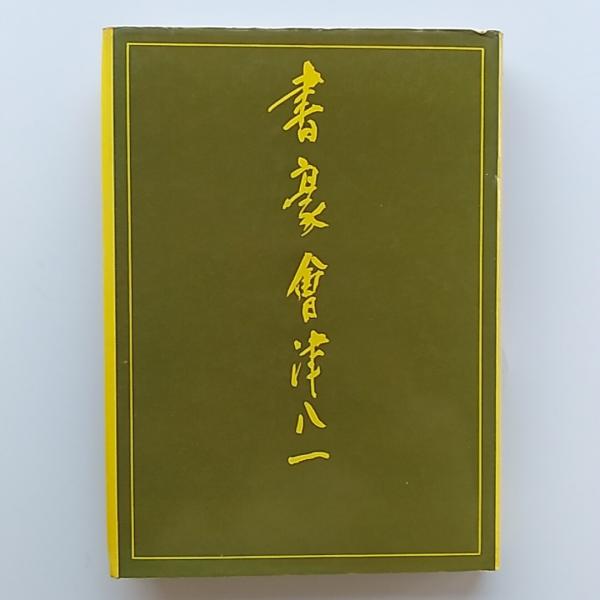 書豪會津八一